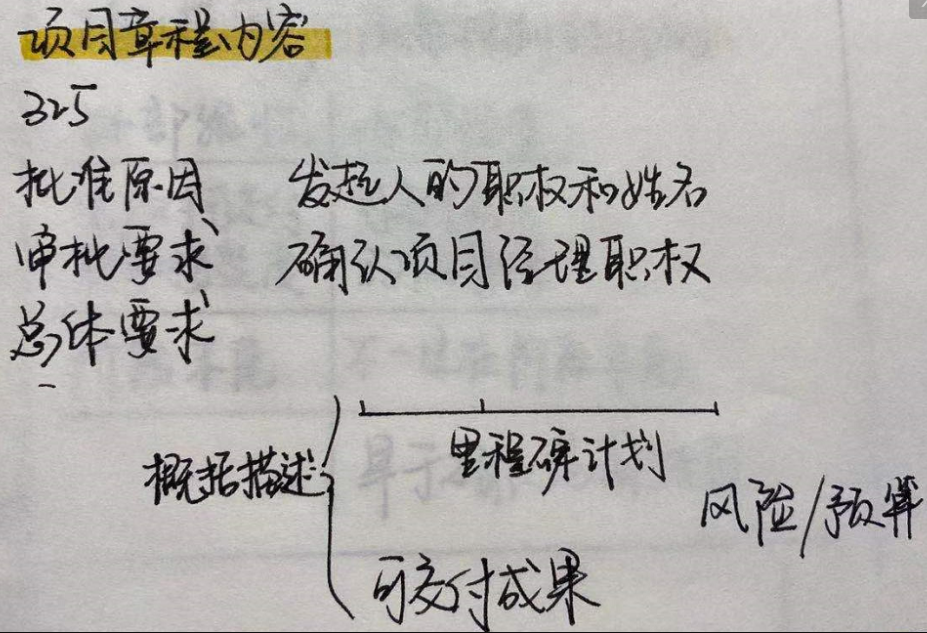 项目章程内容
325
批准原因 发起人的职权和姓名
审批要求 确认项目经理职权
总体要求
概括描述
里程碑计划
风险/预算
可交付成果